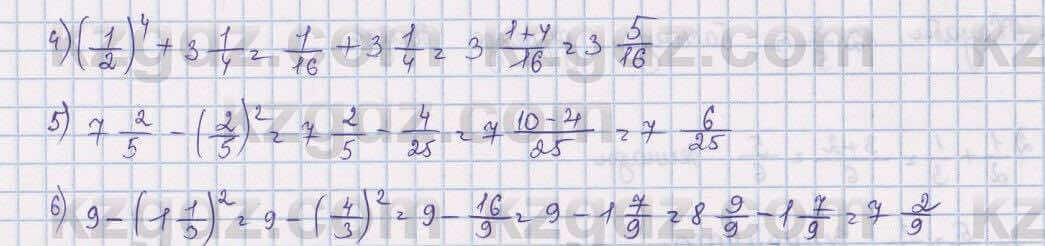 4) (1/2)^4 + 3 1/4 = 1/16 + 3 1/4 = 3 (1+4)/16 = 3 5/16
5) 7 2/5 - (2/5)^2 = 7 2/5 - 4/25 = 7 (10-4)/25 = 7 6/25
6) 9 - (1 1/3)^2 = 9 - (4/3)^2 = 9 - 16/9 = 9 - 1 7/9 = 8 9/9 - 1 7/9 = 7 2/9